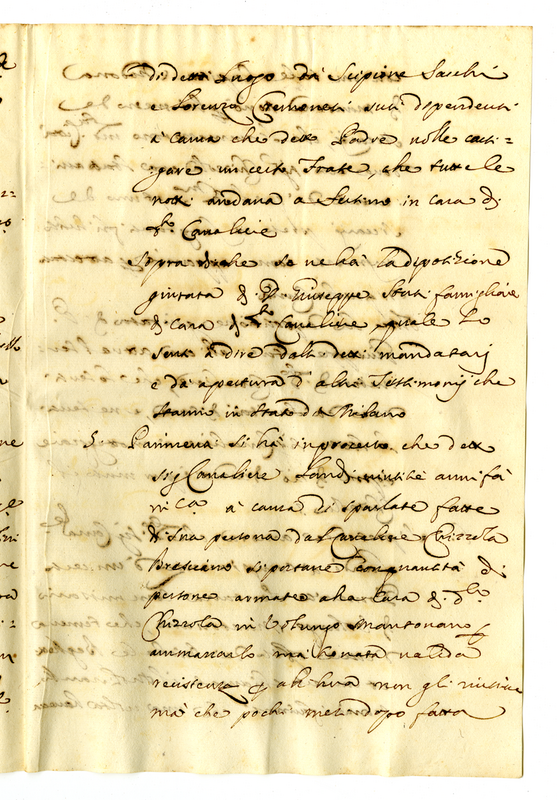 di detto Luogo da Scipione Sacchi
e Lorenzo Cremonesi suoi dependenti
à causa che detto Padre nolle casti=
gare un certo Frate, che tutte le
notti andava a in casa di
do Cavaliere
Sopra di che se ne hà la dipositione
giurata di Giuseppe famigliare
di casa di do Cavaliere quale lo
sentì à dire dalli detti mandatarj
e da apertura d'altri Testimonij che
stanno in Stato di Milano
5. Parimenti si hà in processo che detto
Sigr Cavaliere Landi anni fà
in ca à causa di sparlate fatte
di sua persona dal Cavaliere Chizzola
Bresciano si portare con quantità di
persone armate alla Casa di do
Chizzola in Volungo Mantovano p
ammazzarlo mà trovata valida
resistenza p all'hora non gli riuscire
mà che pochi mesi dopo fatta